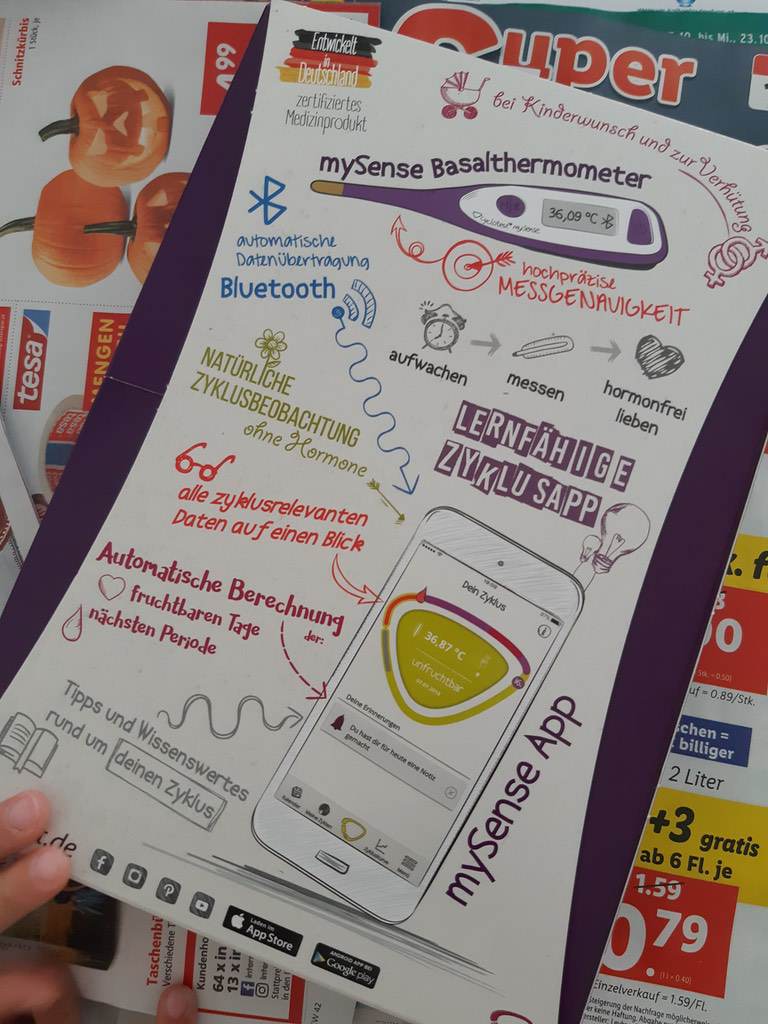 Schnitzkürbis
1 Stück, je
4.99
tesa
Super
bis Mi., 23.10
Entwickelt
in
Deutschland
zertifiziertes
Medizinprodukt
bei Kinderwunsch und zur Verhütung
mySense Basalthermometer
cyclotest mysense
36,09 °C
automatische
Datenübertragung
Bluetooth
hochpräzise
MESSGENAUIGKEIT
aufwachen
messen
hormonfrei
lieben
NATÜRLICHE
ZYKLUSBEOBACHTUNG
ohne Hormone
LERNFÄHIGE
ZYKLUSAPP
alle zyklusrelevanten
Daten auf einen Blick
Automatische Berechnung
der:
fruchtbaren Tage
nächsten Periode
Tipps und Wissenswertes
rund um deinen Zyklus
Dein Zyklus
36,87 °C
unfruchtbar
Deine Erinnerungen
Du hast dir für heute eine Notiz
gemacht
Kalender
Meine Zyklen
Zykluskurve
Menü
mySense App
t.de
Laden im
App Store
ANDROID APP BEI
Google play
Taschenbü
Verschiedene T
Kundenho
64 x in
13 x in
uf = 0.89/Stk.
schen =
billiger
2 Liter
+3 gratis
ab 6 Fl. je
1.59
0.79
(1 l = 0.40)
Einzelverkauf = 1.59/Fl.